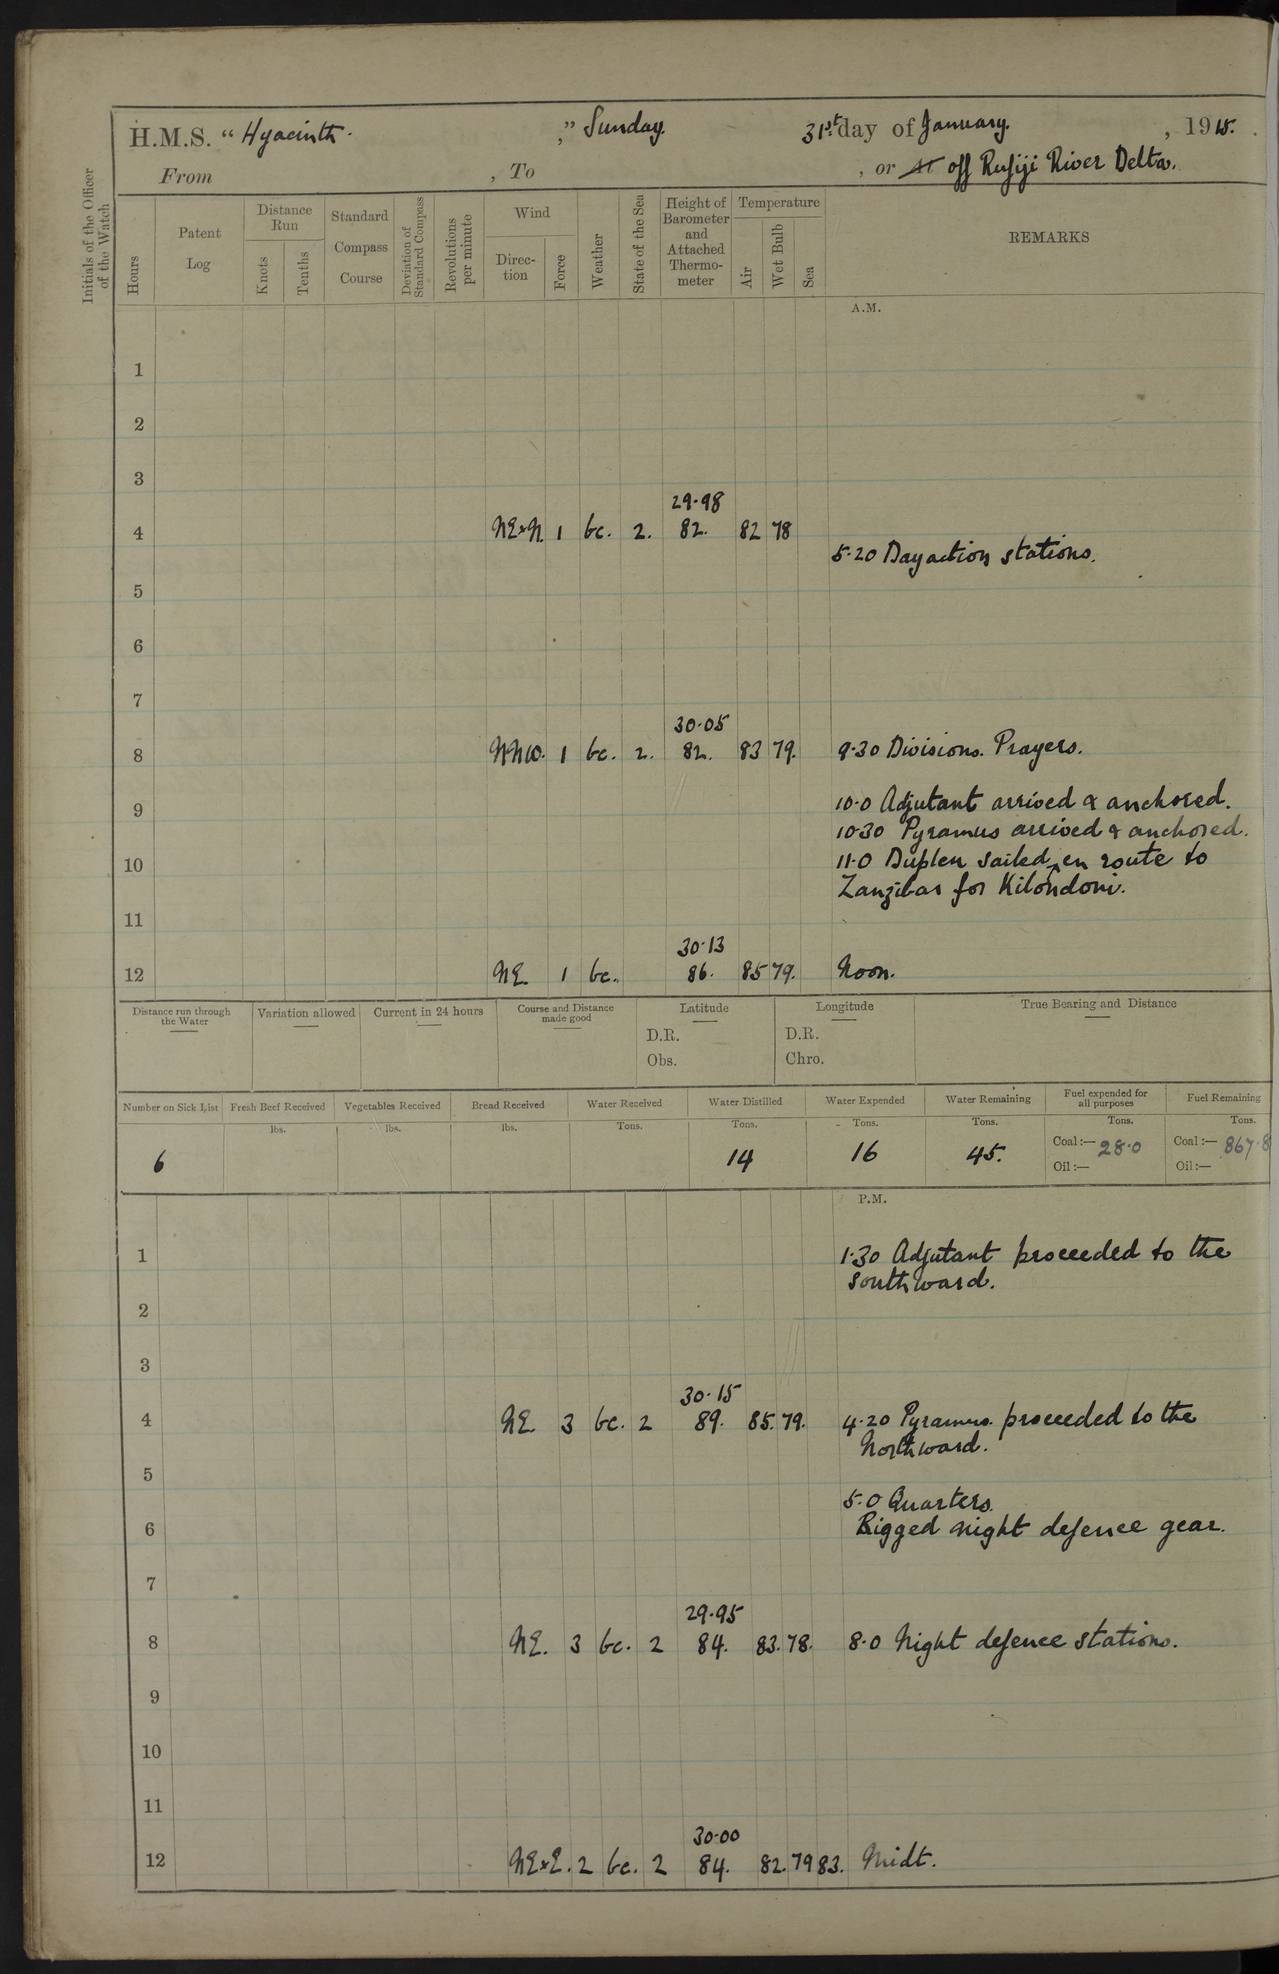 H.M.S. “ Hyacinth. ,” Sunday. 31st. day of January. , 1915.
From , To , or At off Rufiji River Delta.
Initials of the Officer of the Watch
Hours
Patent Log
Distance Run
Knots
Tenths
Standard Compass Course
Deviation of Standard Compass
Revolutions per minute
Wind
Direc-tion
Force
Weather
State of the Sea
Height of Barometer and Attached Thermo-meter
Temperature
Air
Wet Bulb
Sea
REMARKS
A.M.
1
2
3
29.98
4 NExN. 1 bc. 2. 82. 82 78
5.20 Day action stations.
5
6
7
30.05
8 NNW. 1 bc. 2. 82. 83 79. 9.30 Divisions. Prayers.
10.0 Adjutant arrived & anchored.
9
10.30 Pyramus arrived & anchored.
10 11.0 Duplex sailed en route to
Zanzibar for Kilondoni.
11
30.13
12 NE 1 bc. 86. 85 79. Noon.
Distance run through the Water
Variation allowed
Current in 24 hours
Course and Distance made good
Latitude
D.R.
Obs.
Longitude
D.R.
Chro.
True Bearing and Distance
Number on Sick List
Fresh Beef Received
Vegetables Received
Bread Received
Water Received
Water Distilled
Water Expended
Water Remaining
Fuel expended for all purposes
Fuel Remaining
lbs. lbs. lbs. Tons. Tons. Tons. Tons. Tons. Tons.
6 14 16 45. Coal:— 28.0 Coal:— 867.8
Oil:— Oil:—
P.M.
1 1.30 Adjutant proceeded to the
southward.
2
3
30.15
4 NE. 3 bc. 2 89. 85. 79. 4.20 Pyramus. proceeded to the
Northward.
5
5.0 Quarters.
6 Rigged night defence gear.
7
29.95
8 NE. 3 bc. 2 84. 83. 78. 8.0 Night defence stations.
9
10
11
30.00
12 NExE. 2 bc. 2 84. 82. 79 83. Midt.